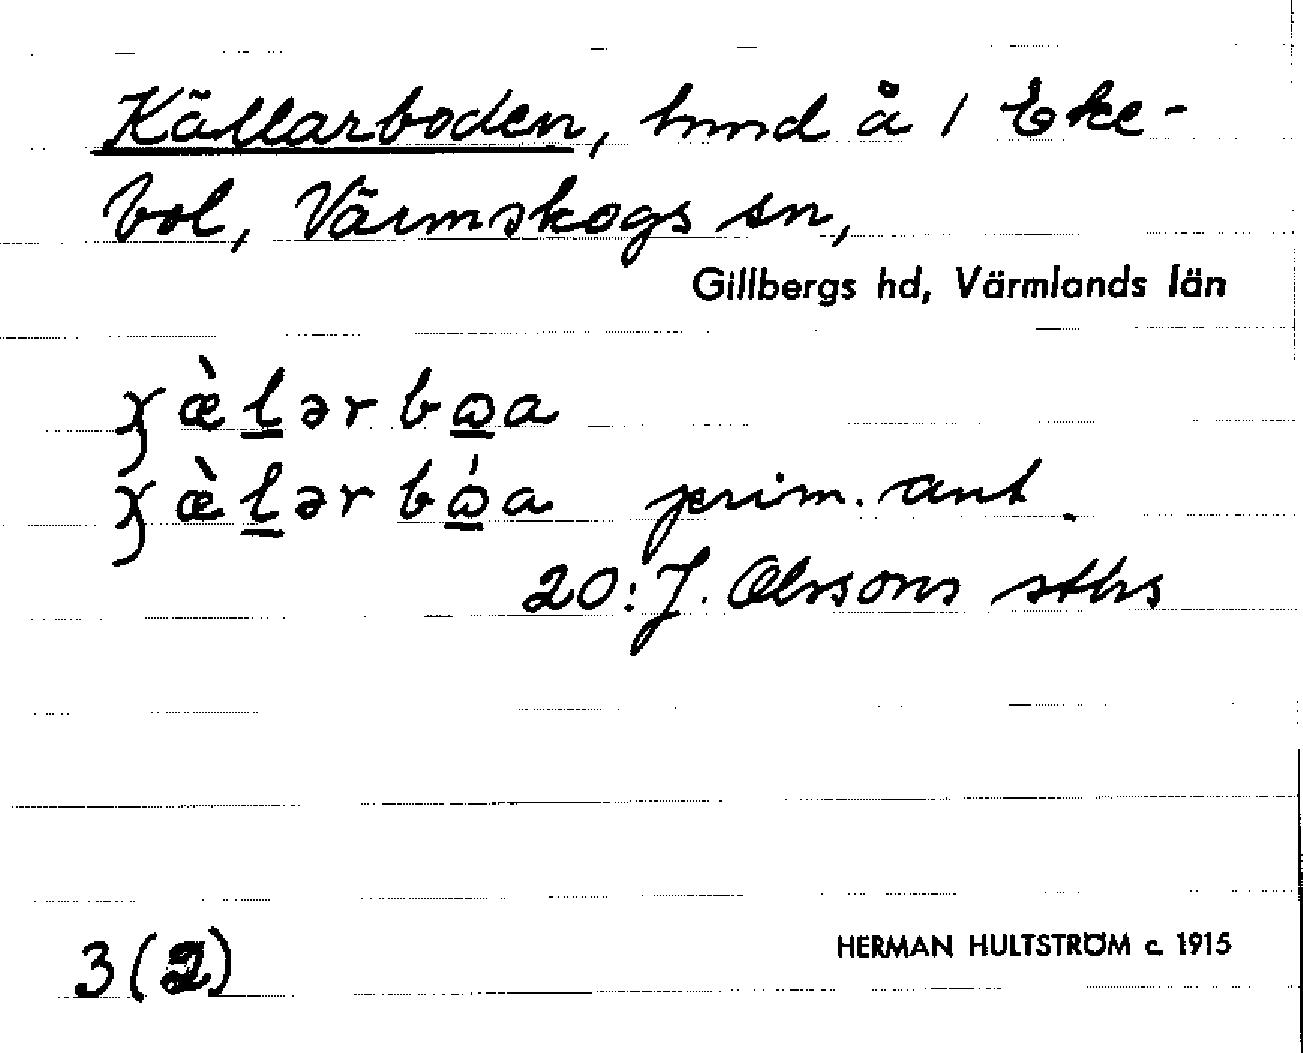 Källarboden, hmd å 1 Eke-
bol, Värmskogs sn,
Gillbergs hd, Värmlands län
ɣæ̀l̠ər bɷ̠a
ɣæ̀l̠ər bɷ̠́a prim. ant.
20: J. Olssons sths
3(2)
HERMAN HULTSTRÖM c. 1915